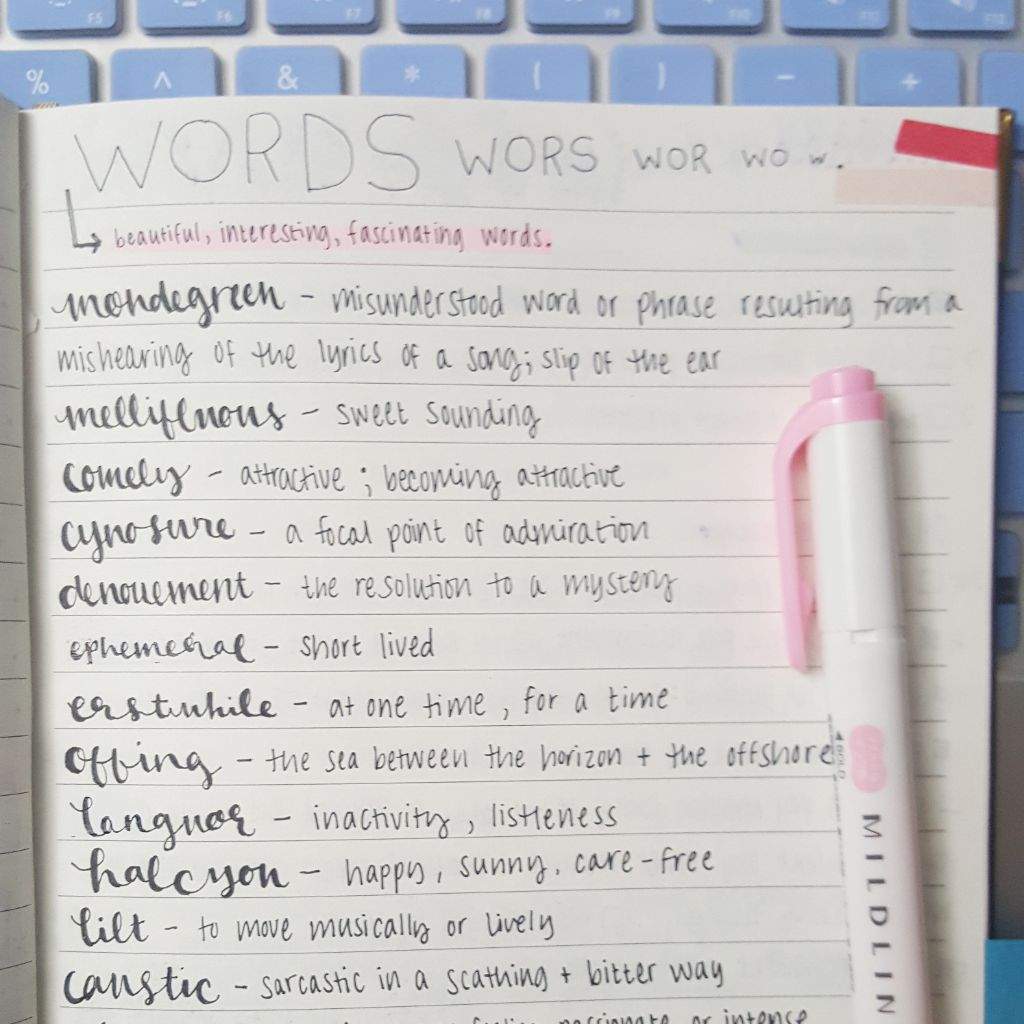 F5 F6 F7 F8 F9 F10 F11 F12
% ^ & * ( ) - +
WORDS WORS WOR WO W.
beautiful, interesting, fascinating words.
mondegreen - misunderstood word or phrase resulting from a
mishearing of the lyrics of a song; slip of the ear
mellifluous - sweet sounding
comely - attractive ; becoming attractive
cynosure - a focal point of admiration
denouement - the resolution to a mystery
ephemeral - short lived
erstwhile - at one time, for a time
offing - the sea between the horizon + the offshore
languor - inactivity, listleness
halcyon - happy, sunny, care-free
lilt - to move musically or lively
caustic - sarcastic in a scathing + bitter way
passionate or intense
BOLD
MILDLIN